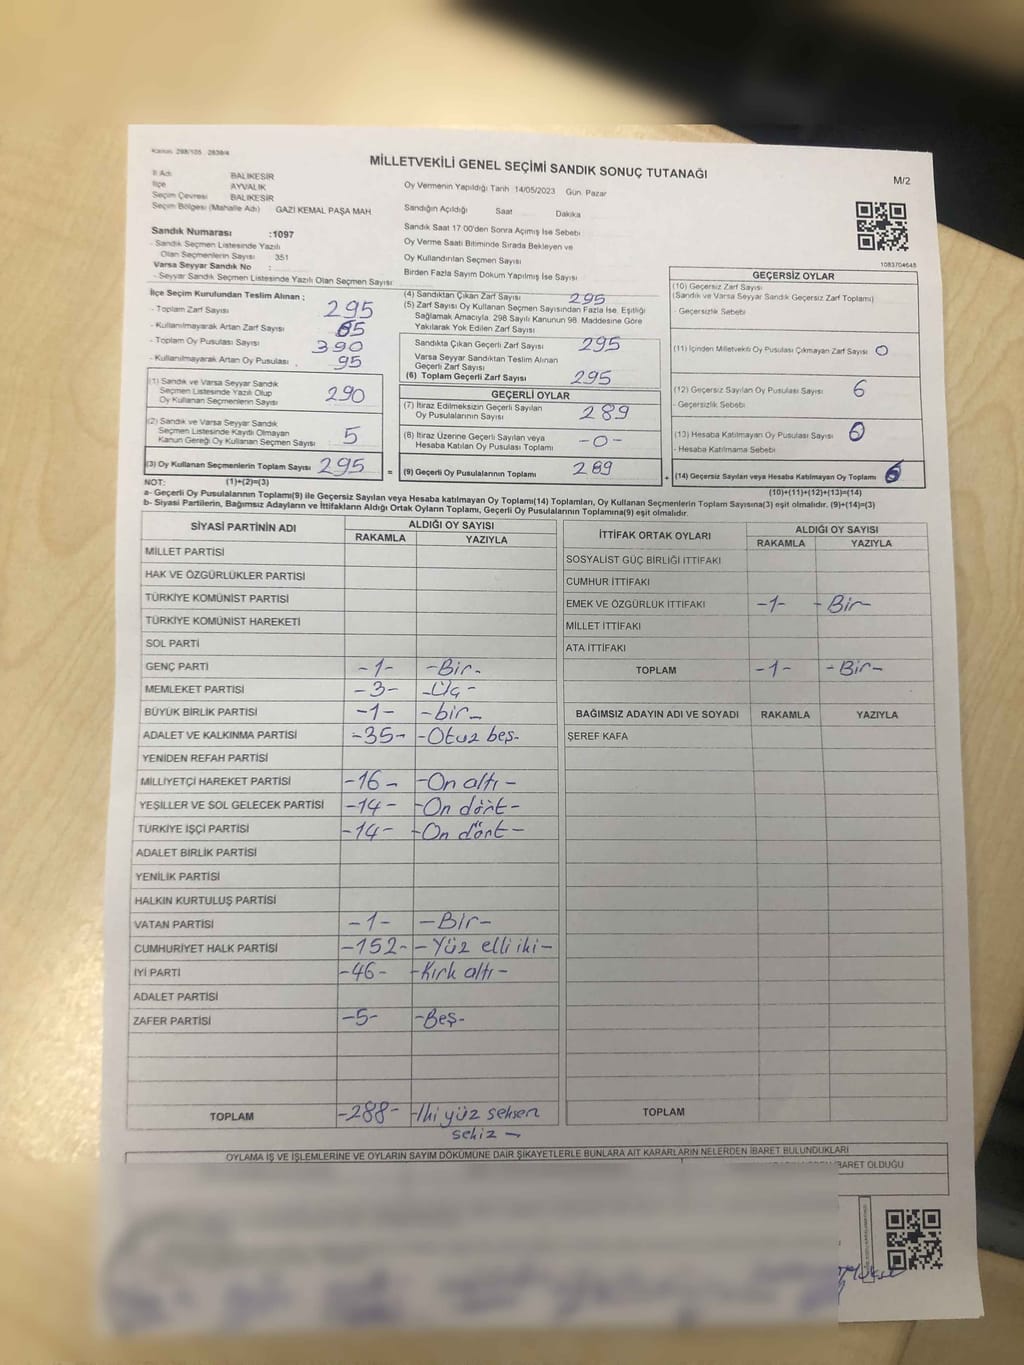 Kanun 298/105 2839/4
MİLLETVEKİLİ GENEL SEÇİMİ SANDIK SONUÇ TUTANAĞI
M/2
İl Adı BALIKESİR
İlçe AYVALIK
Seçim Çevresi BALIKESİR
Seçim Bölgesi (Mahalle Adı) GAZİ KEMAL PAŞA MAH
Oy Vermenin Yapıldığı Tarih 14/05/2023 Gün. Pazar
Sandığın Açıldığı Saat Dakika
Sandık Saat 17 00'den Sonra Açımış İse Sebebi
Oy Verme Saati Bitiminde Sırada Bekleyen ve
Oy Kullandırılan Seçmen Sayısı
Birden Fazla Sayım Döküm Yapılmış İse Sayısı
Sandık Numarası :1097
- Sandık Seçmen Listesinde Yazılı
Olan Seçmenlerin Sayısı 351
Varsa Seyyar Sandık No :
- Seyyar Sandık Seçmen Listesinde Yazılı Olan Seçmen Sayısı
1083704645
İlçe Seçim Kurulundan Teslim Alınan ;
- Toplam Zarf Sayısı 295
- Kullanılmayarak Artan Zarf Sayısı
- Toplam Oy Pusulası Sayısı 390
- Kullanılmayarak Artan Oy Pusulası 95
(1) Sandık ve Varsa Seyyar Sandık
Seçmen Listesinde Yazılı Olup
Oy Kullanan Seçmenlerin Sayısı 290
(2) Sandık ve Varsa Seyyar Sandık
Seçmen Listesinde Kaydı Olmayan
Kanun Gereği Oy Kullanan Seçmen Sayısı 5
(3) Oy Kullanan Seçmenlerin Toplam Sayısı 295 =
(4) Sandıktan Çıkan Zarf Sayısı 295
(5) Zarf Sayısı Oy Kullanan Seçmen Sayısından Fazla İse, Eşitliği
Sağlamak Amacıyla. 298 Sayılı Kanunun 98. Maddesine Göre
Yakılarak Yok Edilen Zarf Sayısı
Sandıkta Çıkan Geçerli Zarf Sayısı 295
Varsa Seyyar Sandıktan Teslim Alınan
Geçerli Zarf Sayısı
(6) Toplam Geçerli Zarf Sayısı 295
GEÇERLİ OYLAR
(7) İtiraz Edilmeksizin Geçerli Sayılan
Oy Pusulalarının Sayısı 289
(8) İtiraz Üzerine Geçerli Sayılan veya
Hesaba Katılan Oy Pusulası Toplamı -0-
(9) Geçerli Oy Pusulalarının Toplamı 289 +
GEÇERSİZ OYLAR
(10) Geçersiz Zarf Sayısı
(Sandık ve Varsa Seyyar Sandık Geçersiz Zarf Toplamı)
- Geçersizlik Sebebi
(11) İçinden Milletvekili Oy Pusulası Çıkmayan Zarf Sayısı 0
(12) Geçersiz Sayılan Oy Pusulası Sayısı 6
- Geçersizlik Sebebi
(13) Hesaba Katılmayan Oy Pusulası Sayısı
- Hesaba Katılmama Sebebi
(14) Geçersiz Sayılan veya Hesaba Katılmayan Oy Toplamı 6
NOT: (1)+(2)=(3)
(10)+(11)+(12)+(13)=(14)
a- Geçerli Oy Pusulalarının Toplamı(9) ile Geçersiz Sayılan veya Hesaba katılmayan Oy Toplamı(14) Toplamları, Oy Kullanan Seçmenlerin Toplam Sayısına(3) eşit olmalıdır. (9)+(14)=(3)
b- Siyasi Partilerin, Bağımsız Adayların ve İttifakların Aldığı Ortak Oyların Toplamı, Geçerli Oy Pusulalarının Toplamına(9) eşit olmalıdır.
SİYASİ PARTİNİN ADI ALDIĞI OY SAYISI
RAKAMLA YAZIYLA
MİLLET PARTİSİ
HAK VE ÖZGÜRLÜKLER PARTİSİ
TÜRKİYE KOMÜNİST PARTİSİ
TÜRKİYE KOMÜNİST HAREKETİ
SOL PARTİ
GENÇ PARTİ -1- -Bir-
MEMLEKET PARTİSİ -3- -Üç-
BÜYÜK BİRLİK PARTİSİ -1- -bir-
ADALET VE KALKINMA PARTİSİ -35- -Otuz beş-
YENİDEN REFAH PARTİSİ
MİLLİYETÇİ HAREKET PARTİSİ -16- -On altı-
YEŞİLLER VE SOL GELECEK PARTİSİ -14- -On dört-
TÜRKİYE İŞÇİ PARTİSİ -14- -On dört-
ADALET BİRLİK PARTİSİ
YENİLİK PARTİSİ
HALKIN KURTULUŞ PARTİSİ
VATAN PARTİSİ -1- -Bir-
CUMHURİYET HALK PARTİSİ -152- -Yüz elli iki-
İYİ PARTİ -46- -Kırk altı-
ADALET PARTİSİ
ZAFER PARTİSİ -5- -Beş-
TOPLAM -288- -İki yüz seksen
sekiz-
İTTİFAK ORTAK OYLARI ALDIĞI OY SAYISI
RAKAMLA YAZIYLA
SOSYALİST GÜÇ BİRLİĞİ İTTİFAKI
CUMHUR İTTİFAKI
EMEK VE ÖZGÜRLÜK İTTİFAKI -1- -Bir-
MİLLET İTTİFAKI
ATA İTTİFAKI
TOPLAM -1- -Bir-
BAĞIMSIZ ADAYIN ADI VE SOYADI RAKAMLA YAZIYLA
ŞEREF KAFA
TOPLAM
OYLAMA İŞ VE İŞLEMLERİNE VE OYLARIN SAYIM DÖKÜMÜNE DAİR ŞİKAYETLERLE BUNLARA AİT KARARLARIN NELERDEN İBARET BULUNDUKLARI
İBARET OLDUĞU